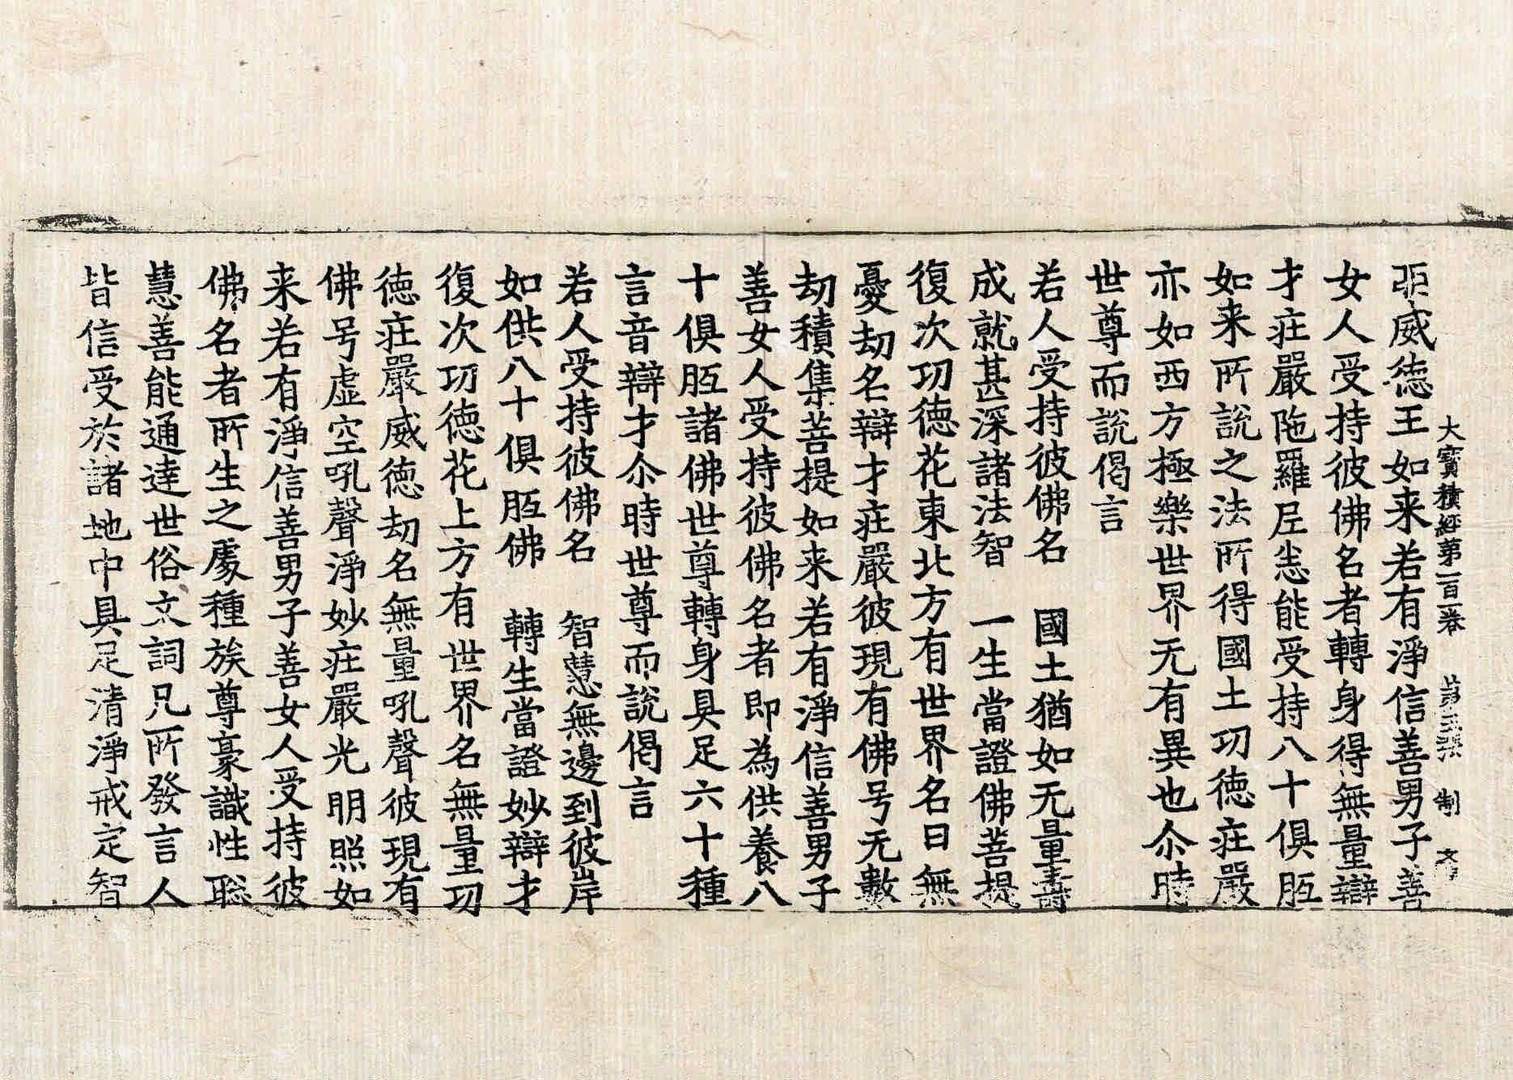 大寶積經第一百卷　第五張　制
亞威徳王如来若有淨信善男子善
女人受持彼佛名者轉身得無量辯
才莊嚴陁羅尼悉能受持八十俱胝
如来所說之法所得國土功徳莊嚴
亦如西方極樂世界无有異也尒時
世尊而說偈言
若人受持彼佛名　國土猶如无量壽
成就甚深諸法智　一生當證佛菩提
復次功徳花東北方有世界名曰無
憂劫名辯才莊嚴彼現有佛号无數
劫積集菩提如来若有淨信善男子
善女人受持彼佛名者即為供養八
十俱胝諸佛世尊轉身具足六十種
言音辯才尒時世尊而說偈言
若人受持彼佛名　智慧無邊到彼岸
如供八十俱胝佛　轉生當證妙辯才
復次功徳花上方有世界名無量功
徳莊嚴威徳劫名無量吼聲彼現有
佛号虚空吼聲淨妙莊嚴光明照如
来若有淨信善男子善女人受持彼
佛名者所生之處種族尊豪識性聡
慧善能通達世俗文詞凡所發言人
皆信受於諸地中具足清淨戒定智